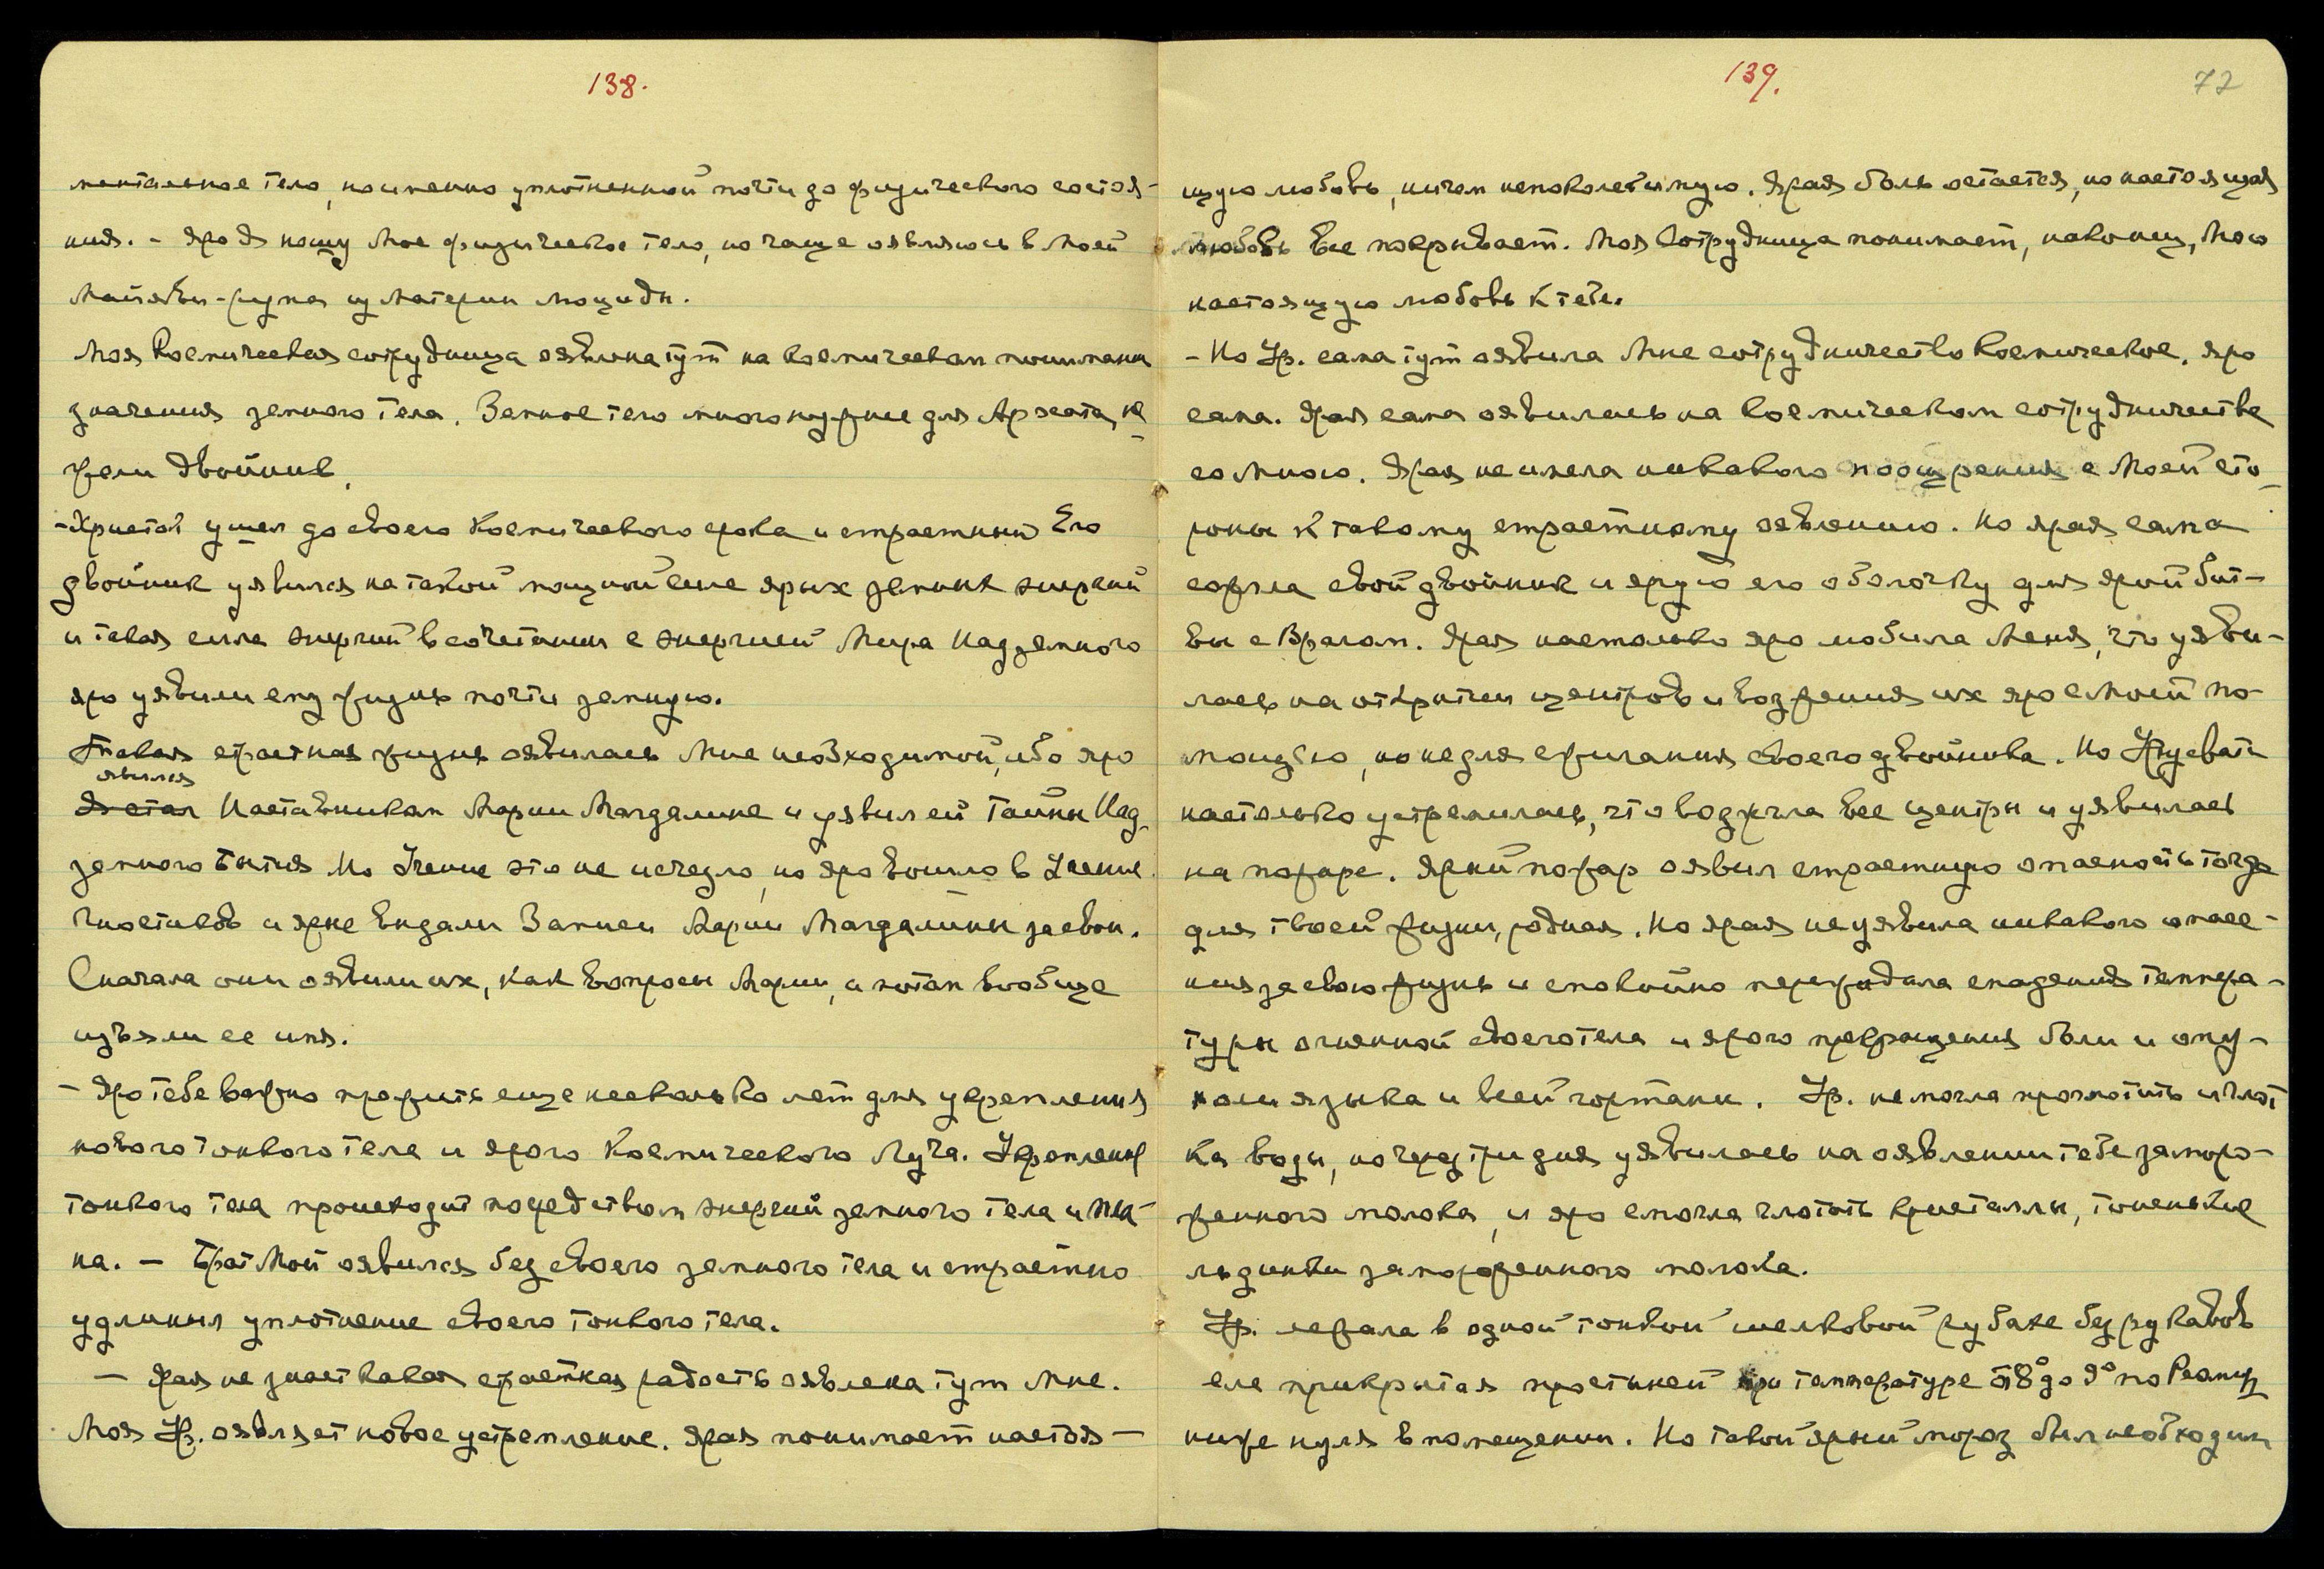 138.
ментальное тело, но именно уплотненной почти до физического состоя-
ния. - Яро Я ношу Мое физическое тело, но чаще являюсь в Моей
Майяви-рупа из Материи Люциды.
Моя Космическая сотрудница оявлена тут на космическом понимании
значения земного тела. Земное тело много нужнее для Архата, не-
жели двойник.
- Христос ушел до своего Космического срока и страстный Его
двойник уявился на такой мощной силе ярых земных энергий
и такая сила энергий в сочетании с энергией Мира Надземного
яро уявили ему жизнь почти земную.
Такая страстная жизнь оявилась Мне необходимой, ибо яро
явился
Я стал Наставником Марии Магдалине и уявил ей Тайны Над-
земного Бытия. Но Учение это не исчезло, но яро вошло в Учение
Гностиков и яркие выдали Записи Марии Магдалины за свои.
Сначала они оявили их, как вопросы Марии, и потом вообще
изъяли ее имя.
- Яро тебе важно прожить еще несколько лет для укрепления
нового тонкого тела и ярого Космического Луча. Укрепление
тонкого тела происходит посредством энергий земного тела и
на. - Брат Мой оявился без своего земного тела и страстно
удлинил уплотнение своего тонкого тела.
- Ярая не знает какая страстная радость оявлена тут Мне.
Моя Ур. оявляет новое устремление. Ярая понимает настоя-
139.
72
щую любовь, ничем непоколебимую. Ярая боль остается, но настоящая
любовь все покрывает. Моя Сотрудница понимает, наконец, Мою
настоящую любовь к тебе.
- Но Ур. сама тут оявила Мне сотрудничество Космическое, яро
сама. Ярая сама оявилась на Космическом сотрудничестве
со Мною. Ярая не имела никакого поощрения с Моей сто-
роны к такому страстному оявлению. Но ярая сама
сожгла свой двойник и ярую его оболочку для ярой бит-
вы с Врагом. Ярая настолько яро любила Меня, что уяви-
лась на открытии центров и возжения их яро с Моей по-
мощью, но не для сжигания своего двойника. Но Урусвати
настолько устремилась, что возжгла все центры и уявилась
на пожаре. Яркий пожар оявил страстную опасность тогда
для твоей жизни, родная. Но ярая не уявила никакого опасе-
ния за свою жизнь и спокойно пережидала спадения темпера-
туры огненной своего тела и ярого прекращения боли и опу-
холи языка и всей гортани. Ур. не могла проглотить и глот
ка воды, но через три дня уявилась на оявлении тебе заморо-
женного молока, и яро смогла глотать кристаллы, тоненькие
льдинки замороженного молока.
Ур. лежала в одной тонкой шелковой рубахе без рукавов
еле прикрытая простыней при температуре от 8° до 9° по Реомюру
ниже нуля в помещении. Но такой ярый мороз был необходим